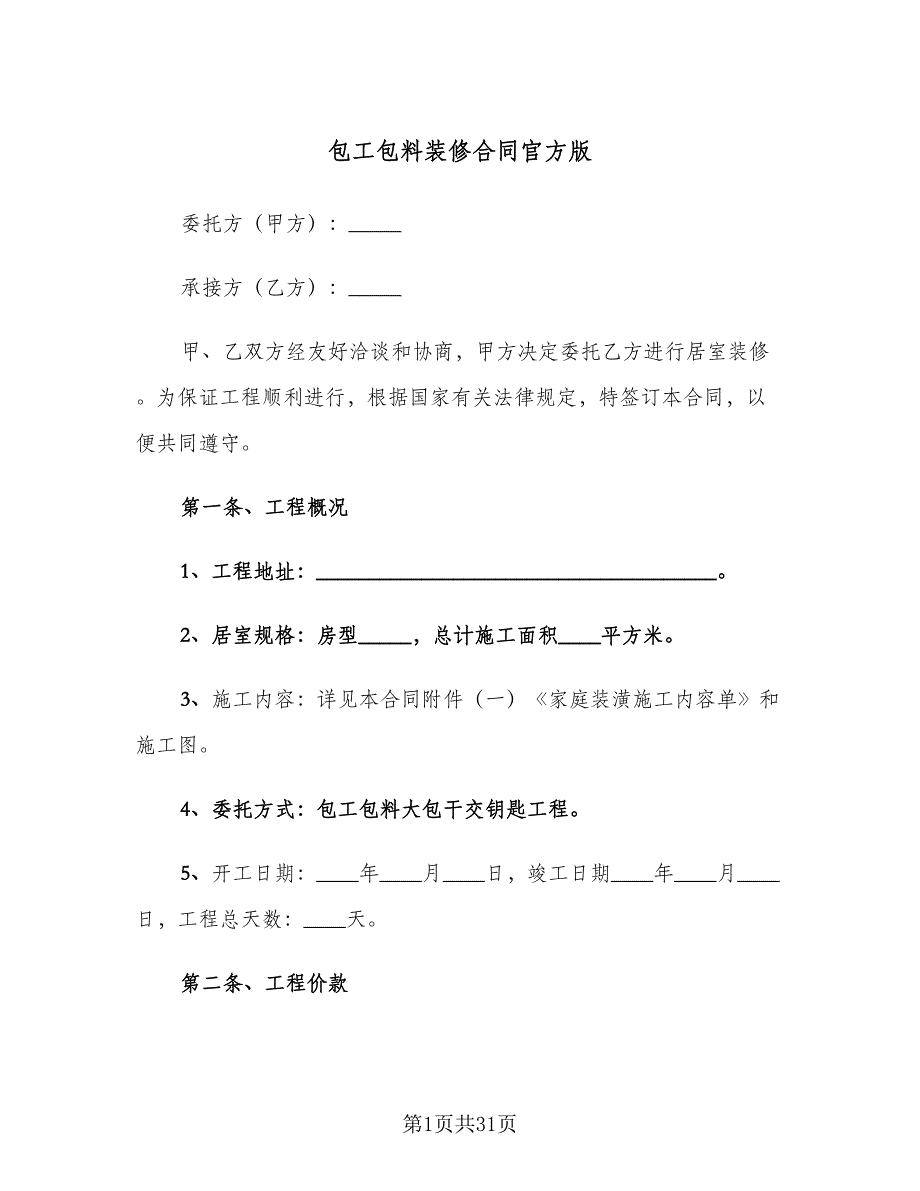 包工包料装修合同官方版
委托方（甲方）：_____
承接方（乙方）：_____
甲、乙双方经友好洽谈和协商，甲方决定委托乙方进行居室装修
。为保证工程顺利进行，根据国家有关法律规定，特签订本合同，以
便共同遵守。
第一条、工程概况
1、工程地址：______________________________________。
2、居室规格：房型_____，总计施工面积____平方米。
3、施工内容：详见本合同附件（一）《家庭装潢施工内容单》和
施工图。
4、委托方式：包工包料大包干交钥匙工程。
5、开工日期：____年____月____日，竣工日期____年____月____
日，工程总天数：____天。
第二条、工程价款
第1页共31页